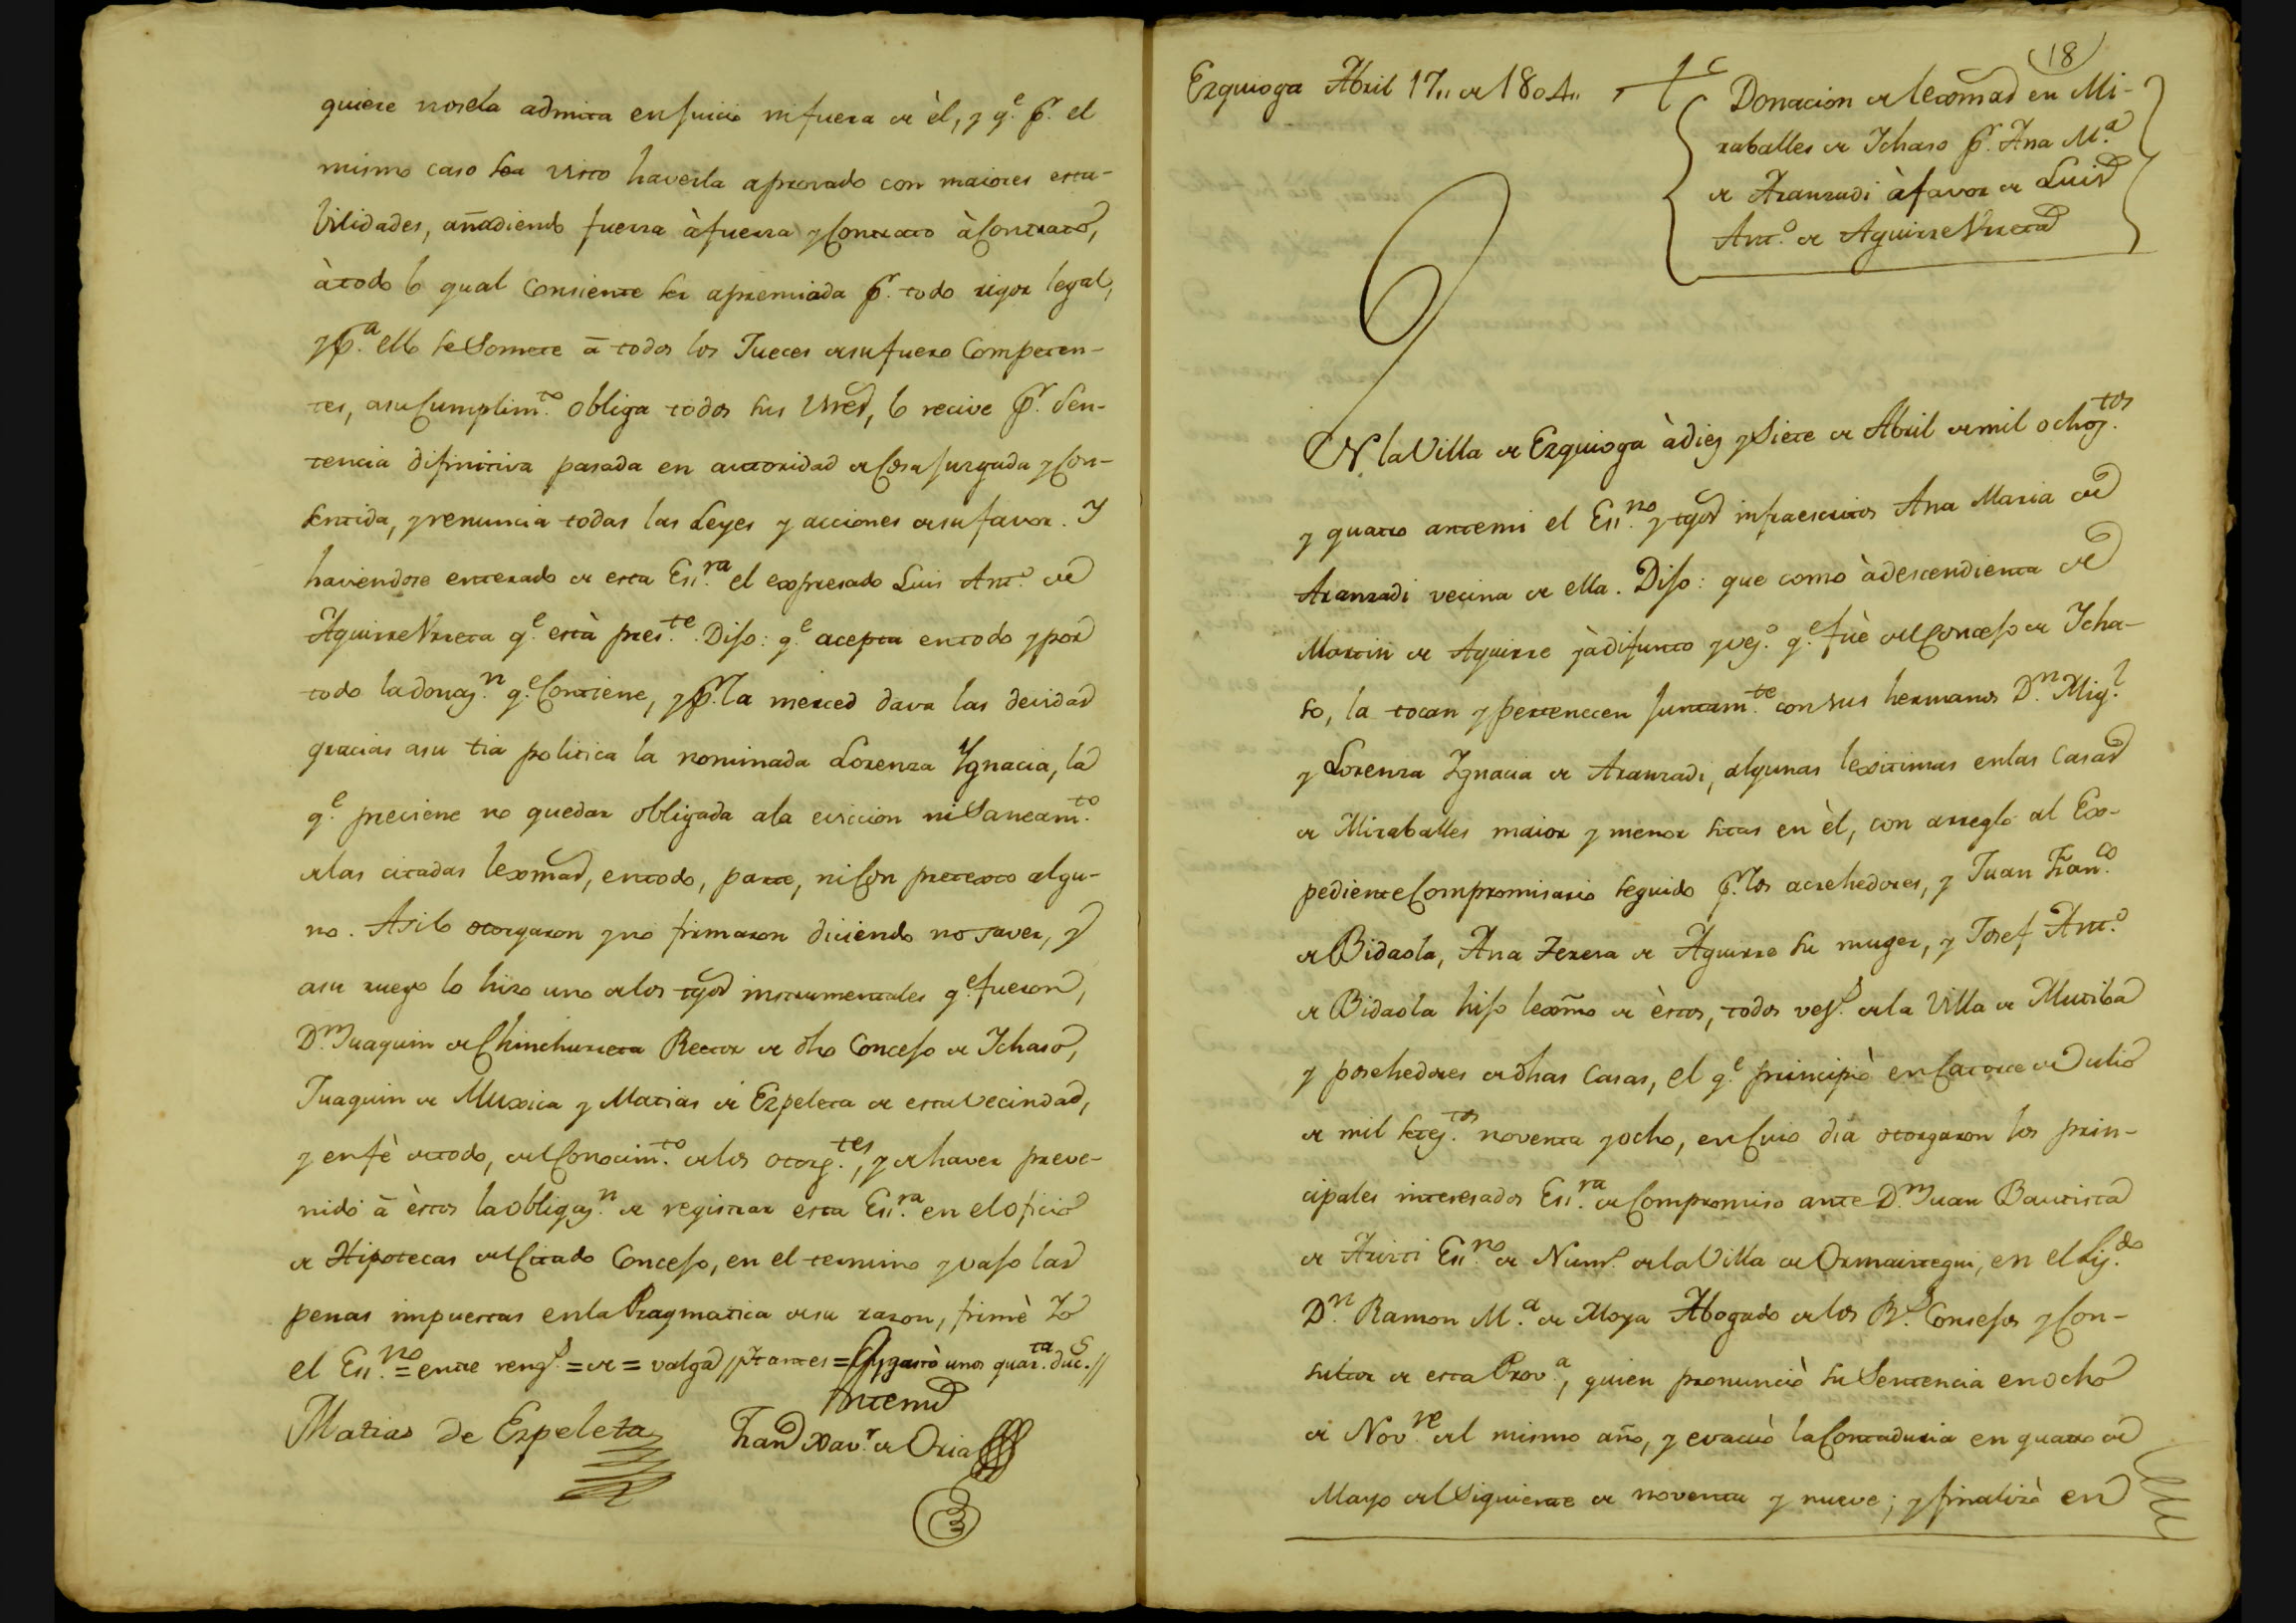 quiere nosela admita en juicio ni fuera de èl, y q.e p.r el
mismo caso sea visto haverla aprovado con maiores esta-
vilidades, añadiendo fuerza à fuerza y Contrato à Contrato,
à todo lo qual consiente ser apremiada p.r todo rigor legal,
y p.a ello se Somete ā todos los Jueces de su fuero Competen-
tes, a su Cumplim.to obliga todos sus vnes, lo recive p.r Sen-
tencia difinitiva pasada en autoridad de Cosa juzgada y Con-
sentida, y renuncia todas las Leyes y acciones de su favor. Y
haviendose enterado de esta Es.ra el expresado Luis Ant.o de
Aguirre Vrreta q.e està pres.te Dijo: q.e acepta en todo y por
todo la donaz.n q.e Contiene, y p.r la merced dava las devidas
gracias a su tia politica la nominada Lorenza Ygnacia, la
q.e previene no quedar obligada a la eviccion ni Saneam.to
de las citadas lexmas, en todo, parte, ni Con pretexto algu-
no. Asi lo otorgaron y no firmaron diciendo no saver, y
a su ruego lo hizo uno de los tgos instrumentales q.e fueron,
D.n Juaquin de Chinchurreta Rector de dho Concejo de Ichaso,
Juaquin de Muxica y Matias de Ezpeleta de esta vecindad,
y en fè de todo, del Conocim.to de los otorg.tes, y de haver preve-
nido ā èstos la obligaz.n de registrar esta Es.ra en el oficio
de Hipotecas del Citado Concejo, en el termino y vajo las
penas impuestas en la Pragmatica de su razon, firmè Yo
el Es.no = entre rengs = de = valga // gastò unos quar.ta duc.s //
Matias de Ezpeleta
Antemi
Fran Xav.r de Oria
18
Ezquioga Abril 17,, de 1804,,
Donacion de lexmas en Mi-
raballes de Ichaso p.r Ana M.a
de Aranzadi à favor de Luis
Ant.o de Aguirre Vrreta
EN la Villa de Ezquioga à diez y Siete de Abril de mil ochoz.tos
y quatro antemi el Es.no y tgos infraescritos Ana Maria de
Aranzadi vecina de ella. Dijo: que como à descendienta de
Martin de Aguirre yà difunto y vez.o q.e fuè del Concejo de Icha-
so, la tocan y pertenecen juntam.te con sus hermanos D.n Mig.l
y Lorenza Ygnacia de Aranzadi, algunas lexitimas en las Casas
de Miraballes maior y menor sitas en èl, con arreglo al Ex-
pediente Compromisario seguido p.r los acrehedores, y Juan Fran.co
de Bidaola, Ana Teresa de Aguirre su muger, y Josef Ant.o
de Bidaola hijo lexmo de èstos, todos vez.s de la Villa de Mutiloa
y posehedores de dhas Casas, el q.e principiò en Catorce de Julio
de mil setez.tos noventa y ocho, en Cuio dia otorgaron los prin-
cipales interesados Es.ra de Compromiso ante D.n Juan Bautista
de Aristi Es.no de Num.o de la Villa de Ormaiztegui, en el Liz.do
D.n Ramon M.a de Moya Abogado de los R.s Consejos y Con-
sultor de esta Prov.a, quien pronunciò su Sentencia en ocho
de Nov.re del mismo año, y evacuò la Contaduria en quatro de
Mayo del Siguiente de noventa y nueve; y finalizò en